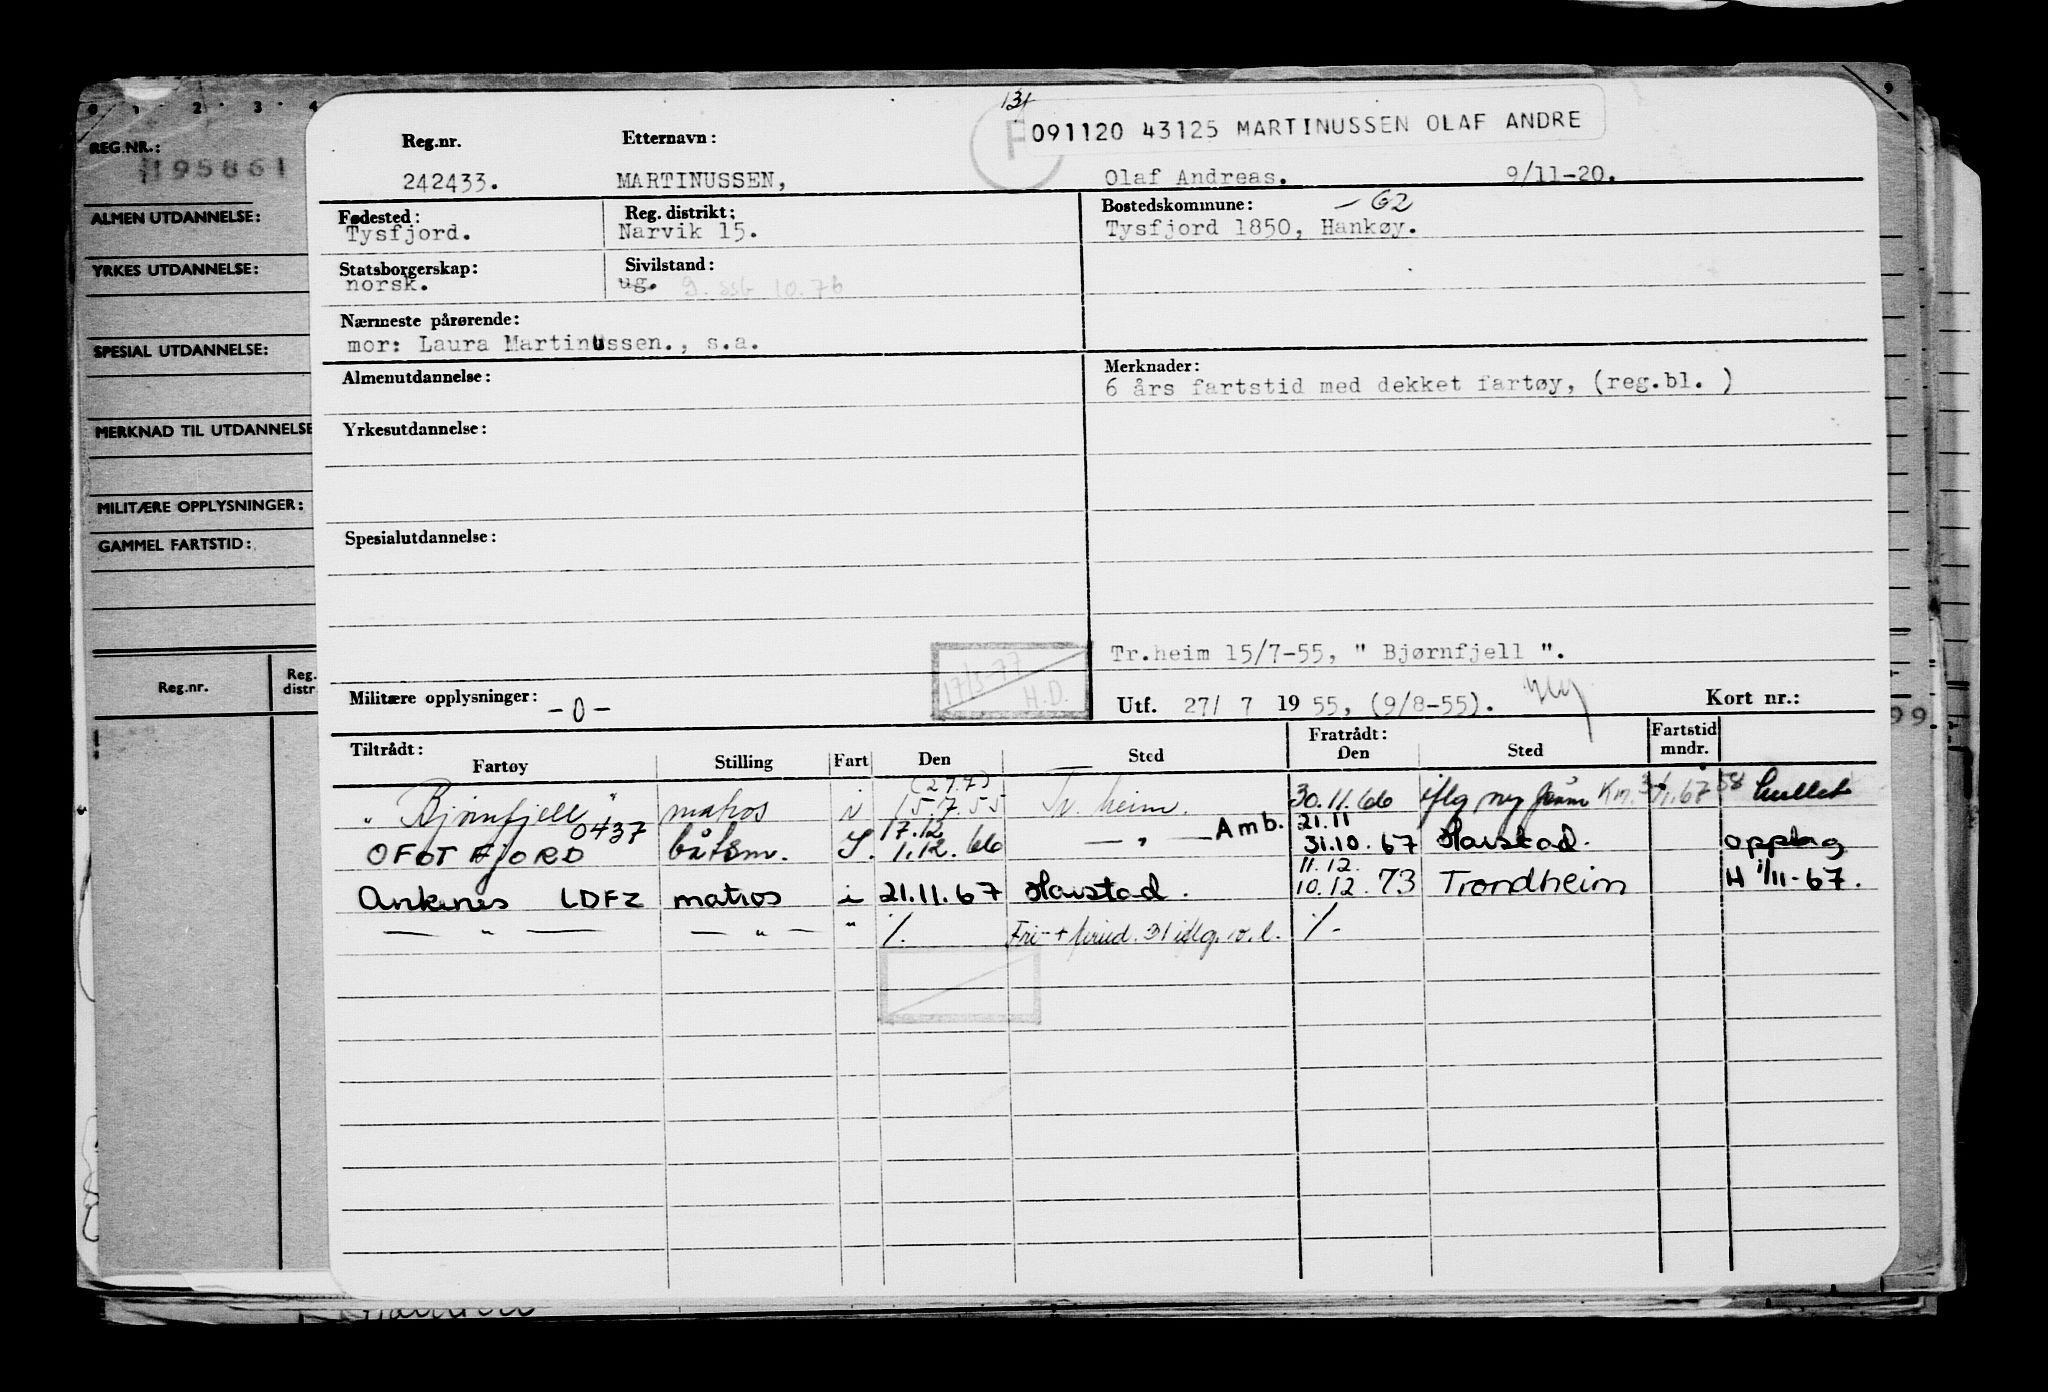 131
091120 43125 MARTINUSSEN OLAF ANDRE
0 1 2 3 4 9
REG.NR.:
195861
ALMEN UTDANNELSE:
YRKES UTDANNELSE:
SPESIAL UTDANNELSE:
MERKNAD TIL UTDANNELSE
MILITÆRE OPPLYSNINGER:
GAMMEL FARTSTID:
Reg.nr. Reg. distr
99
Reg.nr. Etternavn:
242433. MARTINUSSEN, Olaf Andreas. 9/11-20.
Fødested: Reg. distrikt: Bostedskommune: -62
Tysfjord. Narvik 15. Tysfjord 1850, Hankøy.
Statsborgerskap: Sivilstand:
norsk. ug. g. ssb 10.76
Nærmeste pårørende:
mor: Laura Martinussen., s.a.
Almenutdannelse: Merknader:
6 års fartstid med dekket fartøy, (reg.bl. )
Yrkesutdannelse:
Spesialutdannelse:
Tr.heim 15/7-55, " Bjørnfjell ".
17/3-77 H.D.
Militære opplysninger: -0- Utf. 27/ 7 1955, (9/8-55). Kort nr.:
Tiltrådt: Fratrådt: Fartstid
Fartøy Stilling Fart Den Sted Den Sted mndr.
(27.7)
"Bjørnfjell" matros i 15.7.55 Tr.heim. 30.11.66 iflg ny 
17.12 Amb. 21.11
OFOTFJORD 0437 båtsm. S. 1.12.66 — " — 31.10.67 Harstad. opplag
11.12.
Ankenes LDFZ matros i 21.11.67 Harstad. 10.12.73 Trondheim H 1/11-67.
— " — — " — " ./. Fri- + 31 iflg. ./-